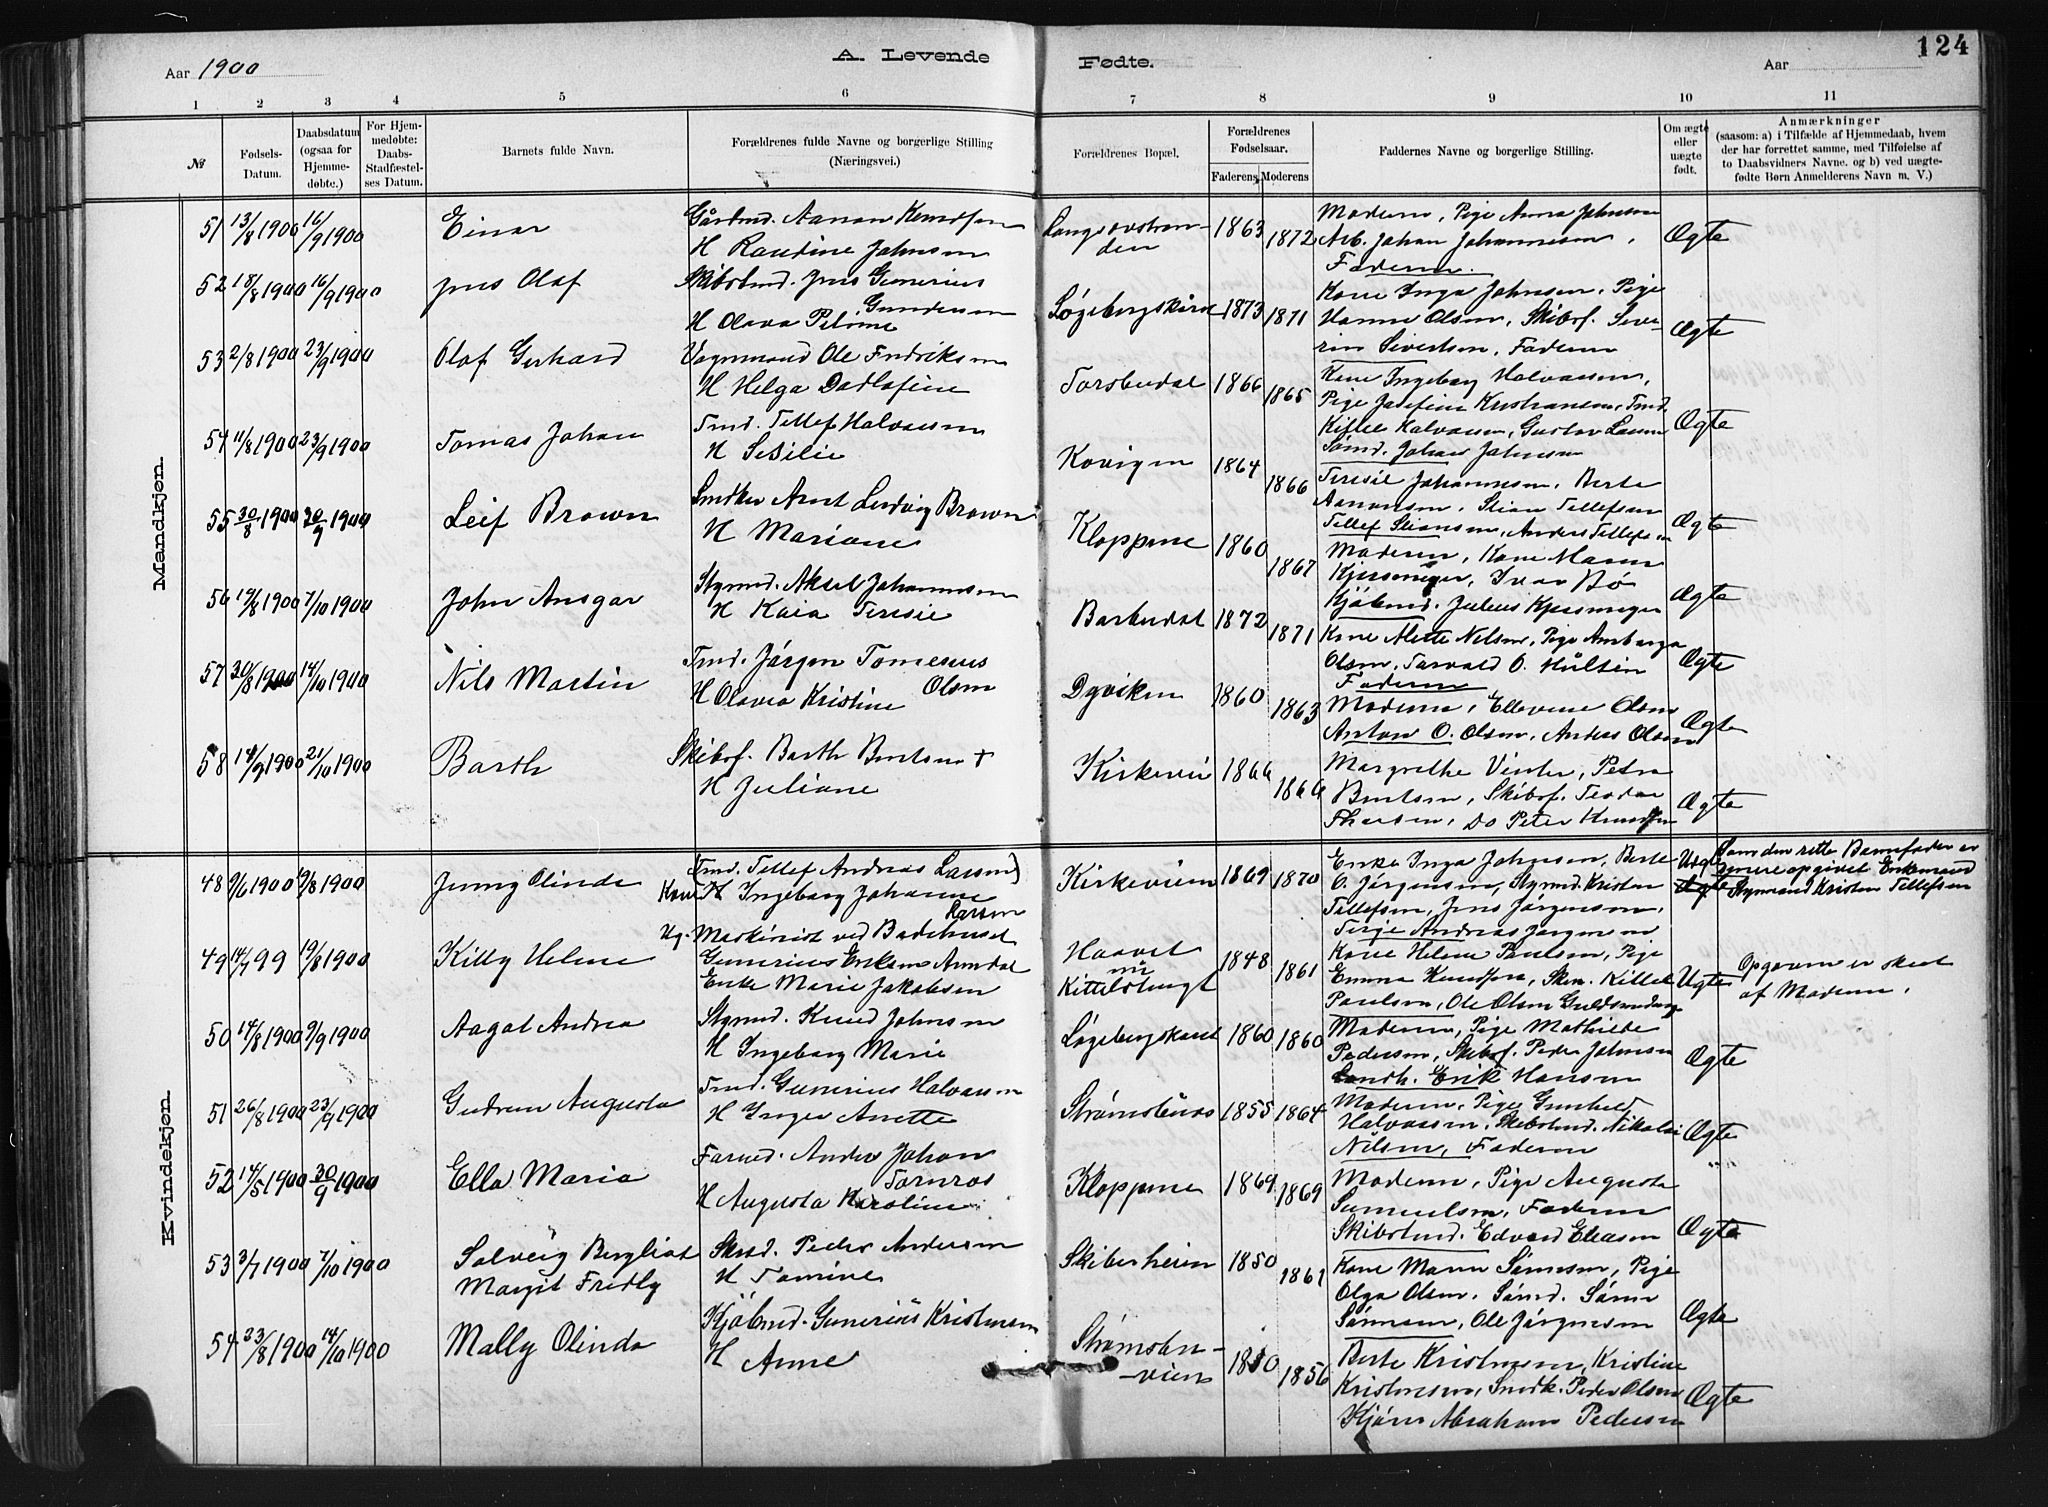 Aar 1900
A. Levende Fødte.
Aar
124
1 2 3 4 5 6 7 8 9 10 11
№
Fødsels-Datum.
Daabsdatum (ogsaa for Hjemme-døbte.)
For Hjem-medøbte: Daabs-Stadfæstel-ses Datum.
Barnets fulde Navn.
Forældrenes fulde Navne og borgerlige Stilling (Næringsvei.)
Forældrenes Bopæl.
Forældrenes Fødselsaar.
Faderens Moderens
Faddernes Navne og borgerlige Stilling.
Om ægte eller uægte født.
Anmærkninger
(saasom: a) i Tilfælde af Hjemmedaab, hvem
der har forrettet samme, med Tilføielse af
to Daabsvidners Navne. og b) ved uægte-
fødte Børn Anmelderens Navn m. V.)
Mandkjøn.
51 13/8 1900 16/9 1900 Einar
Gårbmd. Aanon Knudsen
H Randine Johnsen
1863 1872
Moderen, Pige Anna Johnsen
Arb. Johan Johannesen,
Faderen.
Ægte
52 18/8 1900 16/9 1900 Jens Olaf
Skibstmd. Jens Gunerius
Gundersen
H Olava Petrine
1873 1871
Kone Inga Johnsen, Pige
Hanne Olsen, Skibsf. Seve-
rin Sivertsen, Faderen
Ægte
53 2/8 1900 23/9 1900 Olaf Gerhard
Vognmand Ole Fredriksen
H Helga Dodlofine
Torsbudal 1866 1865
Kone Ingeborg Halvorsen,
Pige Josefine Kristiansen, Tmd.
Kittel Halvorsen, Gustav Larsen
Sømd. Johan Johnsen
Ægte
54 11/8 1900 23/9 1900 Tomas Johan
Tmd. Tellef Halvorsen
H Sesilie
Kovigen 1864 1866
Teresie Johannesen, Berte
Aanonsen, Stian Tellefsen
Tellef Stiansen, Anders Tellefsen
Ægte
55 30/8 1900 30/9 1900 Leif Brown
Smdker Arnt Ludvig Brown
H Mariane
Kloppene 1860 1867
Moderen, Kone Maren
Kjersmeyer, Ivar Bø
Kjøbmd. Julius Kjersmeyer
Ægte
56 19/8 1900 7/10 1900 John Ansgar
Stymd. Aksel Johannesen
H Kaia Teresie
Barbudal 1872 1871
Kone Mette Nilsen, Pige Amborga
Olsen, Torvald O. Hultin
Faderen
Ægte
57 30/8 1900 14/10 1900 Nils Martin
Tmd. Jörgen Tomesius
Olsen
H Olavia Kristine
Dyviken 1860 1863
Moderen, Ellevine Olsen
Anton O. Olsen, Anders Olsen
Ægte
58 14/9 1900 21/10 1900 Barth
Skibsf. Barth Berntsen +
H Juliane
Kirkevei 1866 1866
Margrethe Vinter, Petra
Berntsen, Skibsf. Teodor
Thorsen, Do Peter Knudsen
Ægte
Kvindekjøn.
48 9/6 1900 19/8 1900 Jenny Olinde
(Tmd. Tellef Andreas Larsen)
Kone H Ingeborg Johanne
Larsen
Kirkeveien 1869 1870
Enke Inga Johnsen, Berte
O. Jörgensen, Stymd. Kristen
Tellefsen, Jens Jörgensen,
Terje Andreas Jörgensen
Uægte
Som den rette Barnefader er
senere opgivet Enkemand
Stymand Kristen Tellefsen
49 14/7 99 19/8 1900 Kitty Helene
Ug. Maskinist ved Badehuset
Gunerius Eriksen Arendal
Enke Marie Jakobsen
Haavet
nu
Kittelsbugt
1848 1861
Kone Helene Paulsen, Pige
Emma Knudsen, Kittel
Paulsen, Ole Olsen
Ugte
Opgaven er skeet
af Moderen.
50 14/8 1900 9/9 1900 Aagot Andrea
Stymd. Knud Johnsen
H Ingeborg Marie
1860 1860
Moderen, Pige Mathilde
Pedersen, Skibsf. Peder Johnsen
Landh. Erik Hansen
Ægte
51 26/8 1900 23/9 1900 Gudrun Augusta
Tmd. Gunerius Halvorsen
H Inger Anette
Strømsbuås 1855 1864
Moderen, Pige Gunhild
Halvorsen, Skibstmd. Nikolai
Nilsen, Faderen
Ægte
52 14/5 1900 30/9 1900 Ella Maria
Farved. Anders Johan
Tornros
H Augusta Karoline
Kloppene 1869 1869
Moderen, Pige Augusta
Samuelsen, Faderen
Skibstmd. Edvard Eliasen
Ægte
53 3/7 1900 7/10 1900 Solveig Bergliot
Margit Fredly
Skræd. Peder Andersen
H Tomine
Skiberheien 1850 1861
Kone Maren Sørensen, Pige
Olga Olsen, Sømd. Søren
Sørensen, Ole Jörgensen
Ægte
54 23/8 1900 14/10 1900 Mally Olinda
Kjöbmd. Gunerius Kristensen
H Anne
Strømsbu-
-veien
1850 1856
Berte Kristensen, Kristine
Kristensen, Smdk. Peder Olsen
Kjøm. Abraham Pedersen
Ægte